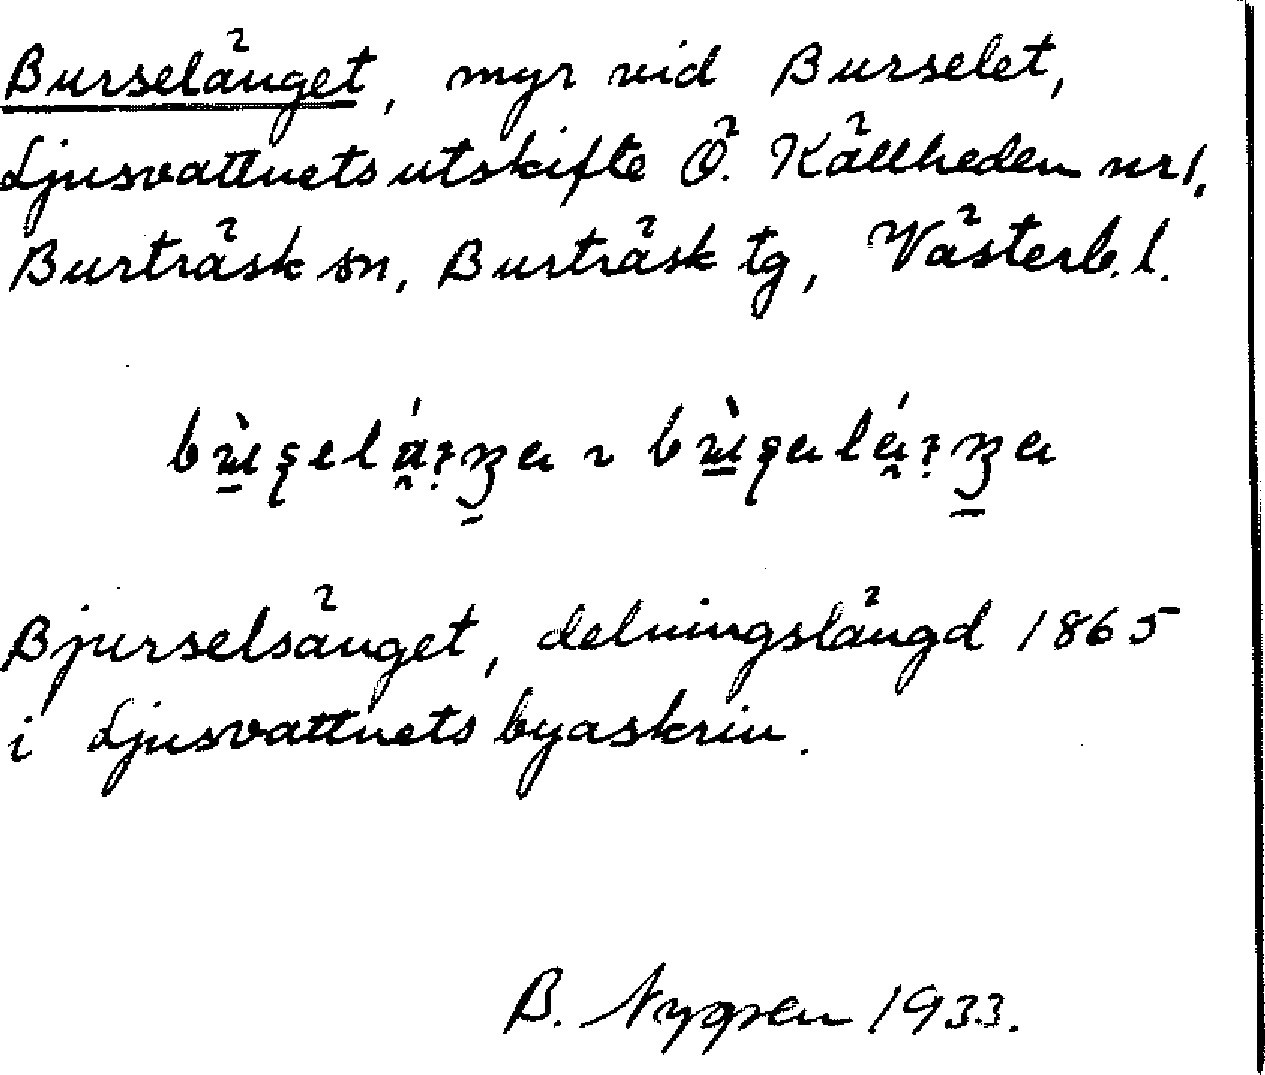 Burselänget, myr vid Burselet,
Ljusvattnets utskifte Ö. Källheden nr 1.
Burträsk sn, Burträsk tg, Västerb. l.
Bjurselsänget, delningslängd 1865
i Ljusvattnets byaskrin.
B. Nygren 1933.